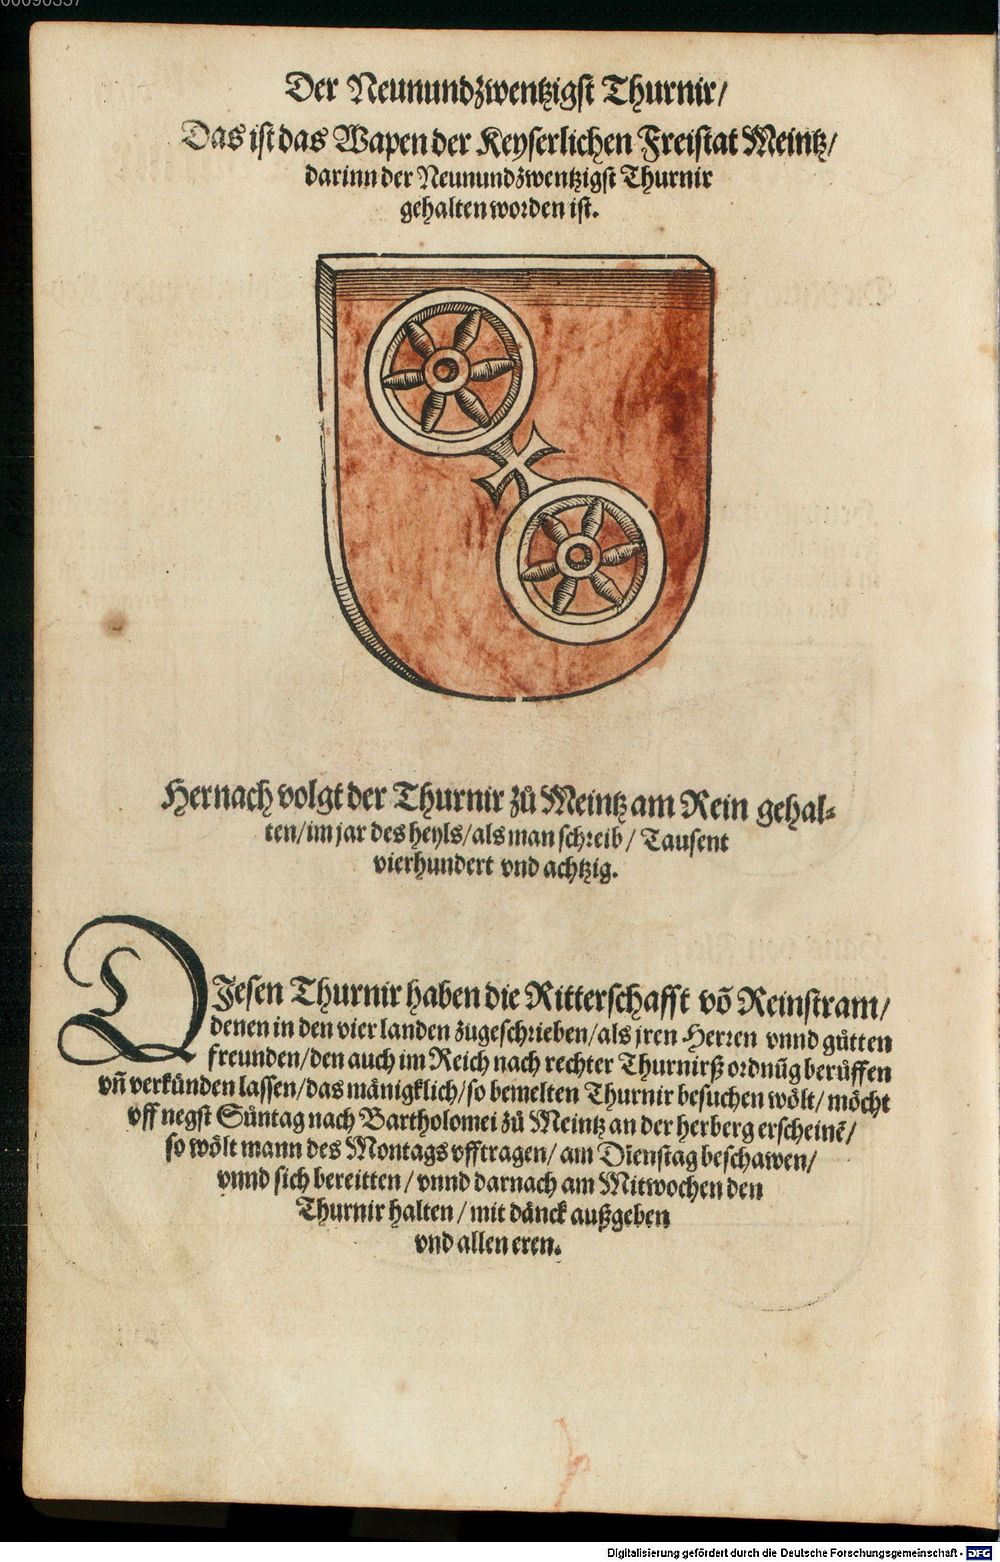 00090557
Der Neunundzwentzigst Thurnir/
Das ist das Wapen der Keyserlichen Freistat Meintz/
darinn der Neunundzwentzigst Thurnir
gehalten worden ist.
Hernach volgt der Thurnir zů Meintz am Rein gehal⸗
ten/ im jar des heyls/ als man schreib/ Tausent
vierhundert vnd achtzig.
DJesen Thurnir haben die Ritterschafft võ Reinstram/
denen in den vier landen zugeschrieben/ als jren Herren vnnd gůtten
freunden/ den auch im Reich nach rechter Thurnirß ordnũg berůffen
vñ verkünden lassen/ das mänigklich/ so bemelten Thurnir besuchen wölt/ möcht
vff negst Sůntag nach Bartholomei zů Meintz an der herberg erscheinẽ/
so wölt mann des Montags vfftragen/ am Dienstag beschawen/
vnnd sich bereitten/ vnnd darnach am Mitwochen den
Thurnir halten/ mit dänck außgeben
vnd allen eren.
Digitalisierung gefördert durch die Deutsche Forschungsgemeinschaft - DFG